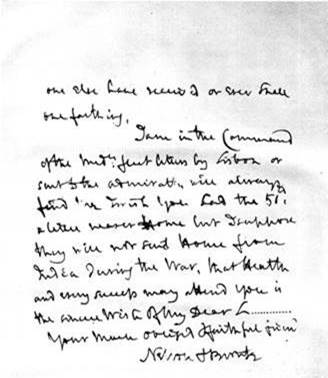 one else have received or ever shall
one farthing.
I am in the Command
of the Medn: fleet letters by Lisbon or
sent to the admiralty will always
find me I wish you had the 51:
a little nearer Home but I suppose
they will not send Home from
India during the War, that Health
and every success may attend you is
the sincere Wish of My Dear L............
Your Much obliged & faithful friend
Nelson & Bronte